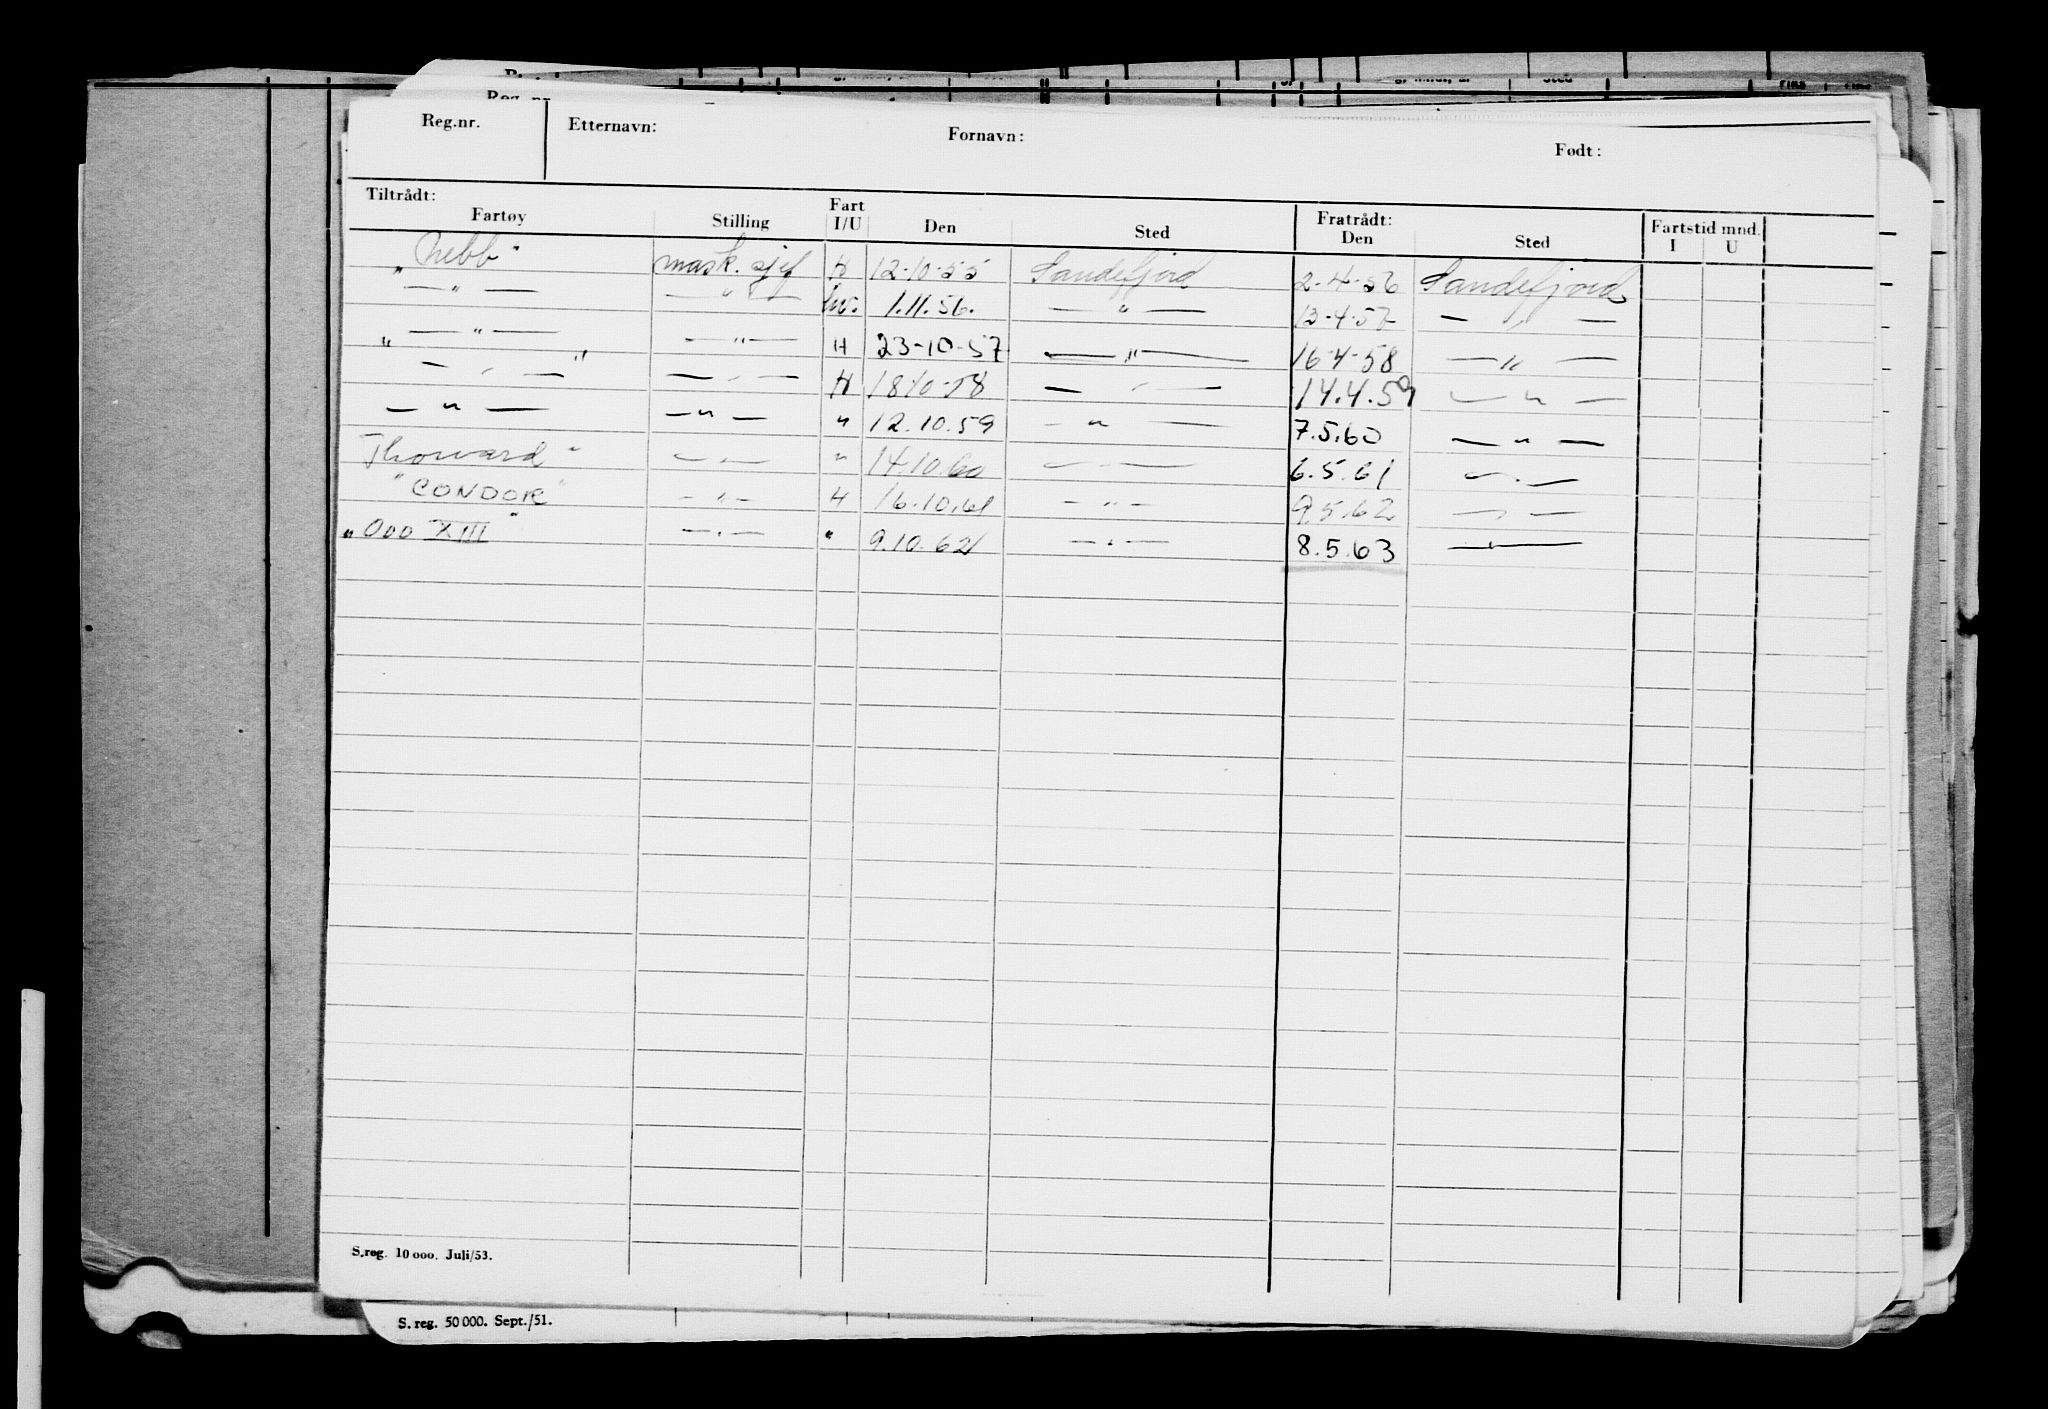 Reg.nr. Etternavn: Fornavn: Født:
Tiltrådt: Fart Fratrådt: Fartstid mnd.
Fartøy Stilling I/U Den Sted Den Sted I U
„Nebb" mask. sjef H 12-10-55 Sandefjord 2-4-56 Sandefjord
— " — — " — hv. 1.11.56. — " — 13-4-57 — " —
— " — — " — H 23-10-57 — " — 16-4-58 — " —
„ — " — " — " — H 18-10-58 — " — 14.4.59 — " —
— " — — " — " 12.10.59 — " — 7.5.60 — " —
Thorvard" — " — " 14.10.60 — " — 6.5.61 — " —
"CONDOR" — " — H 16.10.61 — " — 9.5.62 — " —
„Os XIII" — " — " 9.10.62 — " — 8.5.63 — " —
S.reg. 10 000. Juli/53.
S. reg. 50 000. Sept./51.